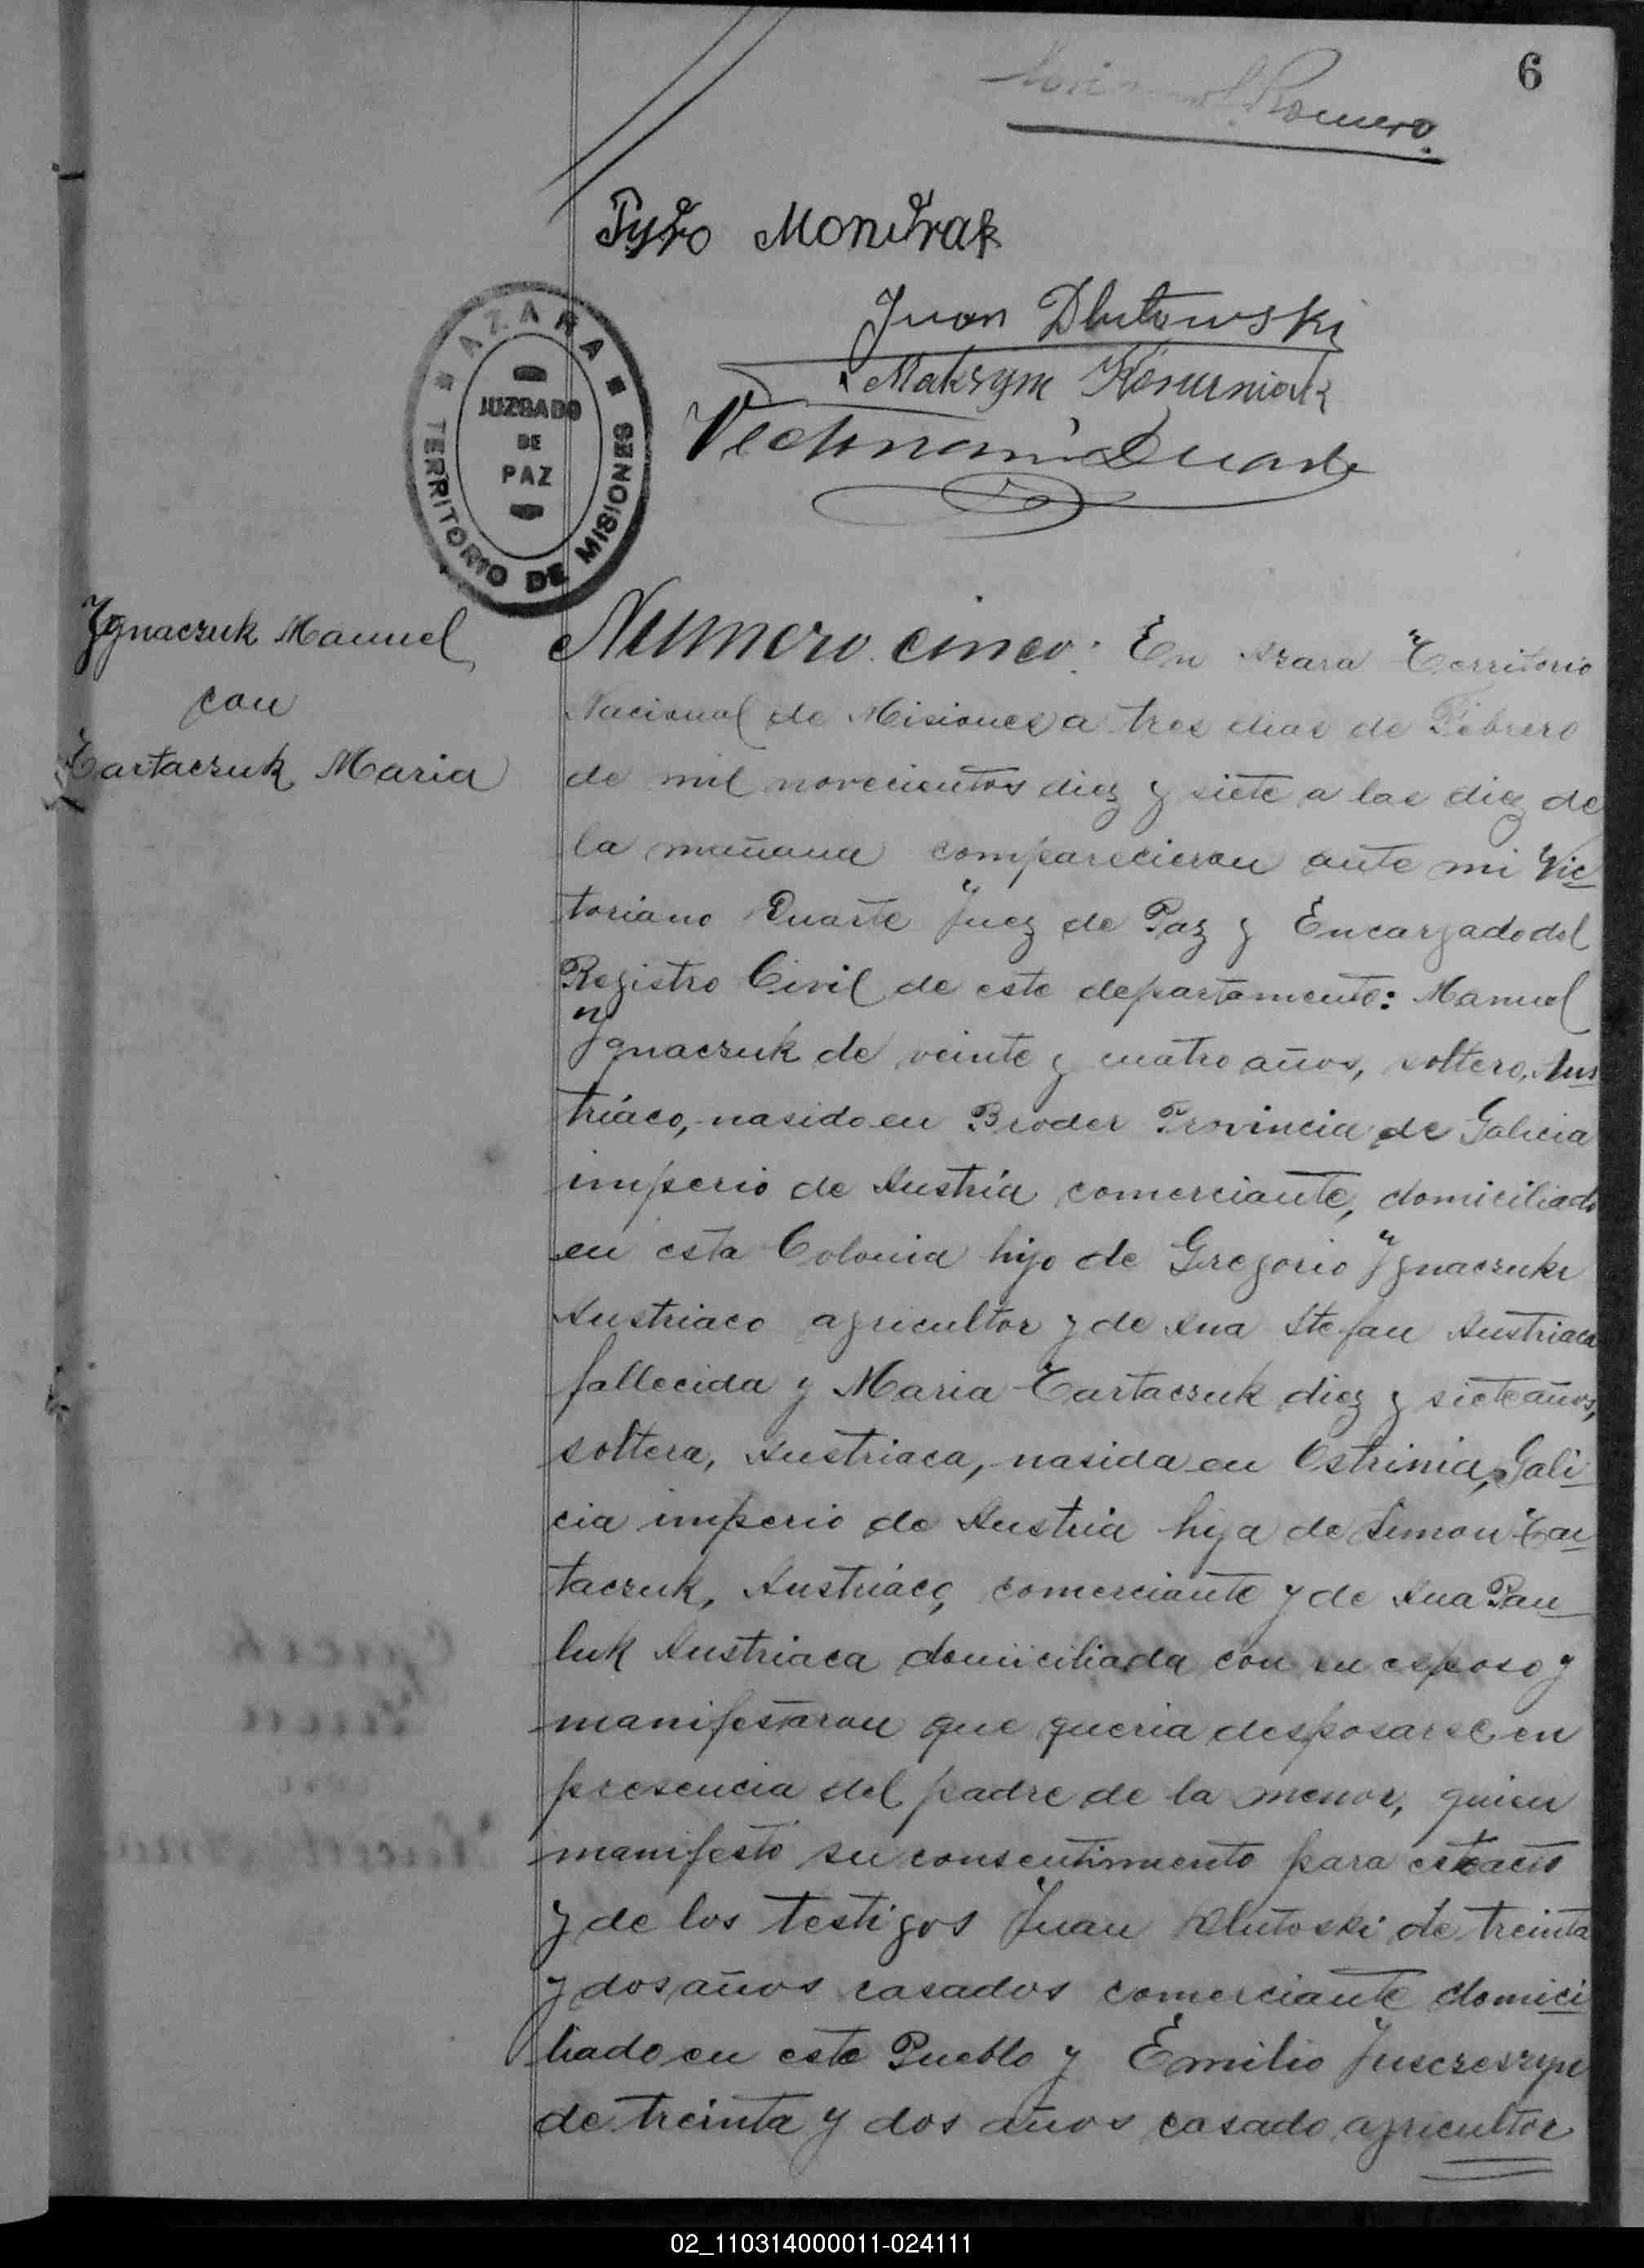 6
Romero.
Pyƚro Mondrak
Juan Dlutowski
Maksym
Duarte
AZARA
JUZGADO
DE
PAZ
TERRITORIO DE MISIONES
Ygnaczuk Manuel
con
Tartaczuk Maria
Numero cinco: En Azara Territorio
Nacional de Misiones a tres dias de Febrero
de mil novecientos diez y siete a las diez de
la mañana comparecieron ante mi Vic
toriano Duarte Juez de Paz y Encargado del
Registro Civil de este departamento: Manuel
Ygnaczuk de veinte y cuatro años, soltero, Aus
triaco, nasido en Broder Provincia de Galicia
imperio de Austria comerciante, domiciliado
en esta Colonia hijo de Gregorio Ygnaczuk
Austriaco agricultor y de Ana Stefan Austriaca
fallecida y Maria Tartaczuk diez y siete años,
soltera, Austriaca, nasida en Ostrinia, Gali
cia imperio de Austria hija de Simon Tar
taczuk, Austriáco, comerciante y de Ana Pau
luk Austriaca domiciliada con su esposo y
manifestaron que queria desposarse en
presencia del padre de la menor, quien
manifestó su consentimiento para este acto
y de los testigos Juan Dlutoski de treinta
y dos años casados comerciante domici
liado en este Pueblo y Emilio
de treinta y dos años casado agricultor
02_110314000011-024111